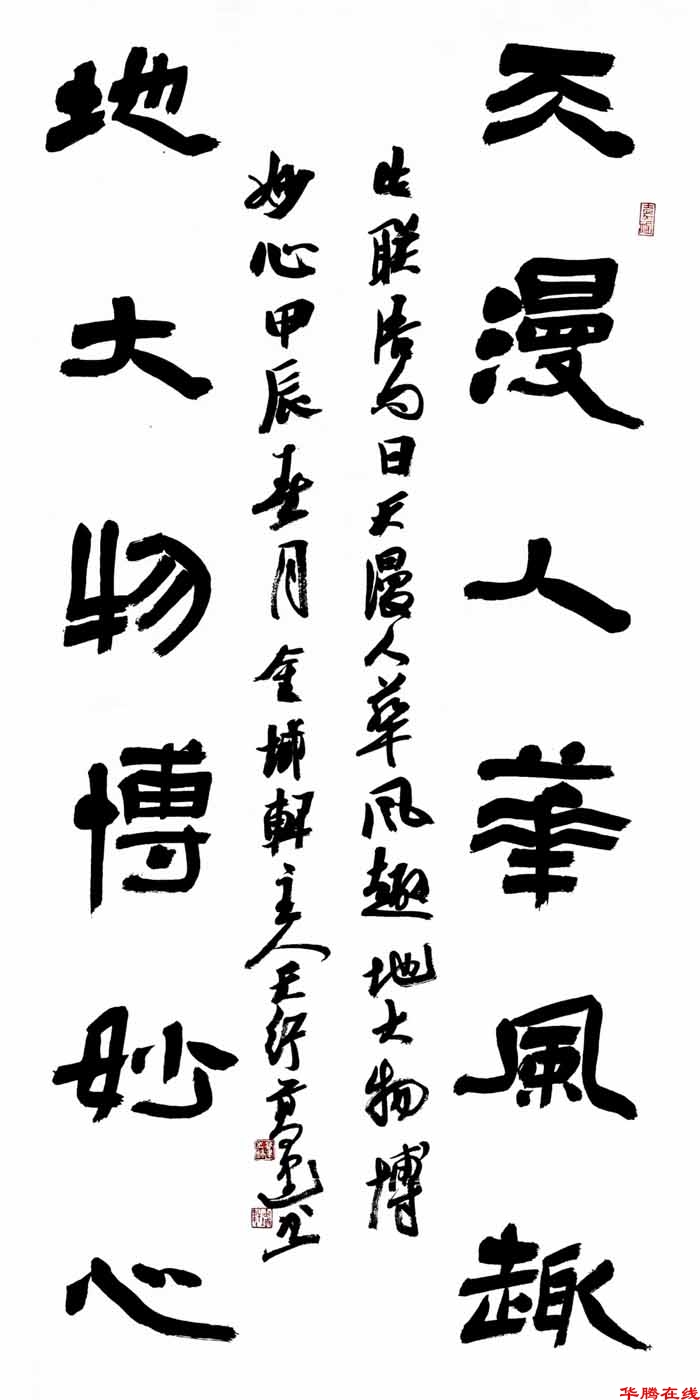 天漫人華風趣
此联语句曰天漫人華风趣地大物博
妙心甲辰春月金城軒主人
地大物博妙心
华腾在线